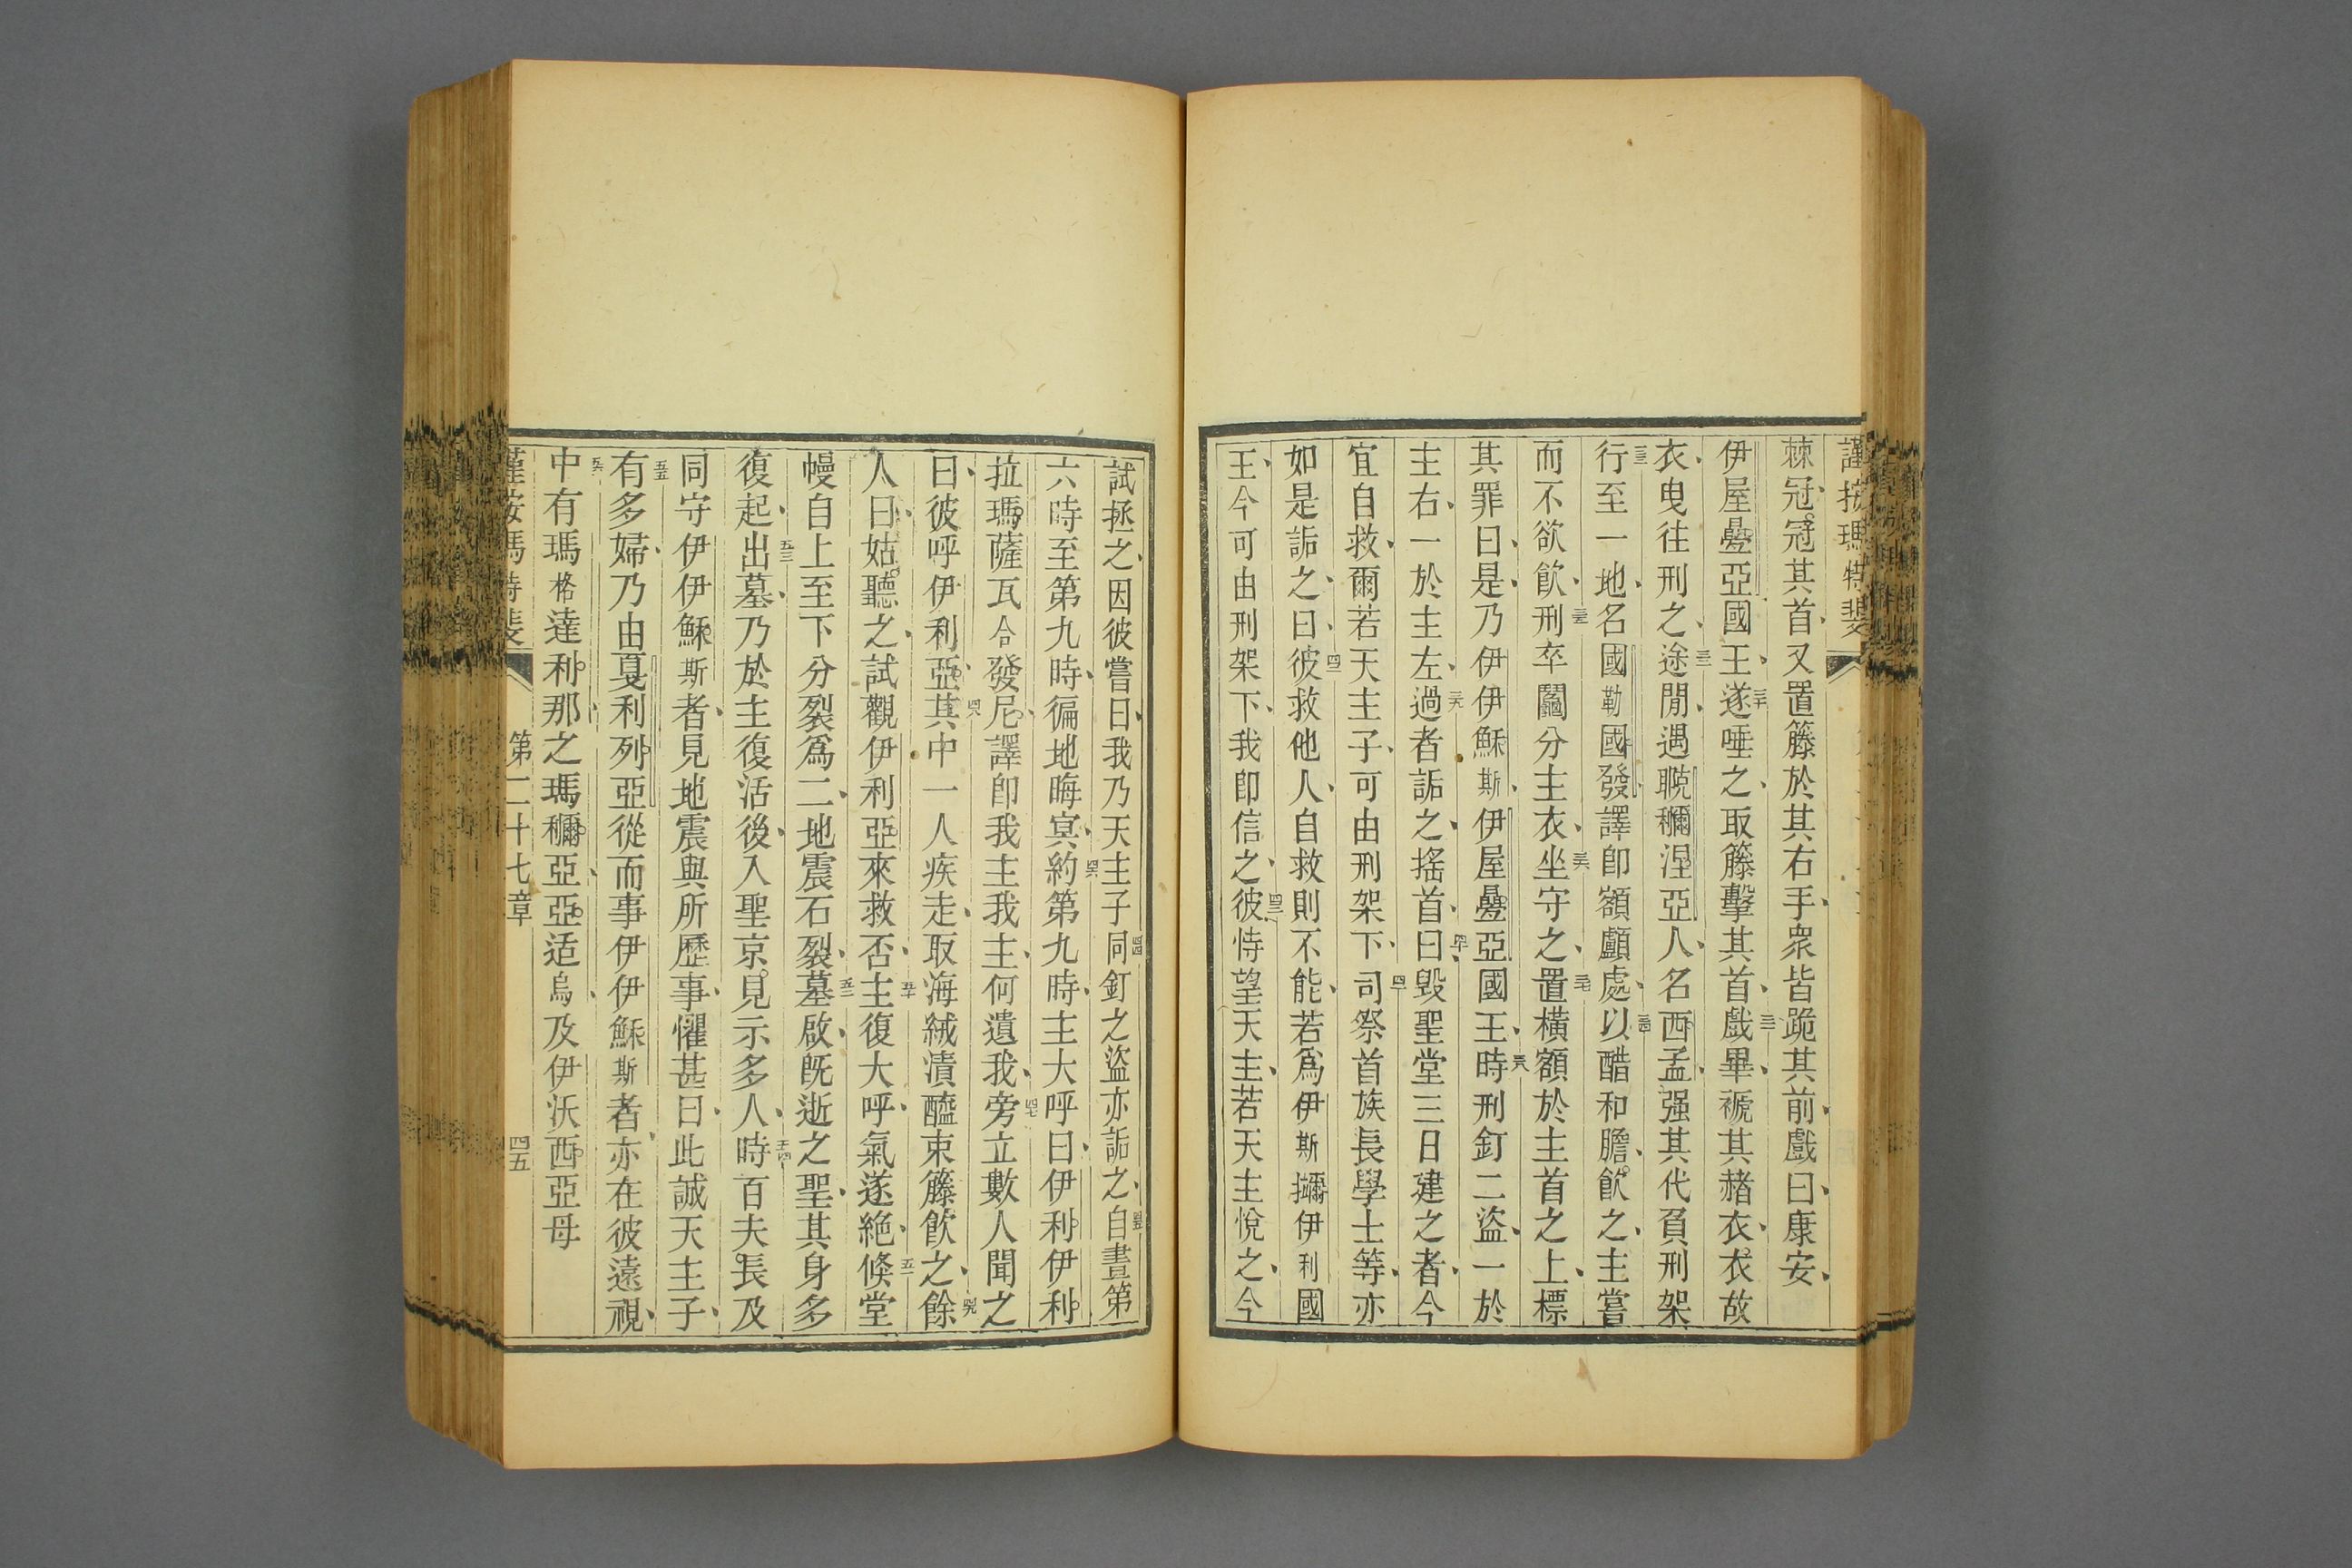 謹按瑪特斐
棘冠、冠其首、又置籐於其右手、衆皆跪其前、戲曰、康安、
伊屋疊亞國王、三十遂唾之、取籐擊其首、三一戲畢、褫其赭衣、衣故
衣、曳往刑之、三二途閒、遇聭穪涅亞人、名西孟、强其代負刑架
三三行至一地、名國勒國發、譯卽額顱處、三四以醋和膽、飲之、主嘗
而不欲飲、三五刑卒鬮分主衣、三六坐守之、三七置橫額於主首之上、標
其罪曰、是乃伊伊穌斯、伊屋疊亞國王、三八時刑釘二盜、一於
主右、一於主左、三九過者詬之、搖首、四十曰、毀聖堂三日建之者、今
宜自救、爾若天主子、可由刑架下、四一司祭首族長學士等、亦
如是詬之、曰、四二彼救他人、自救則不能、若爲伊斯擿伊利國
王、今可由刑架下、我卽信之、四三彼恃望天主、若天主悅之、今
試拯之、因彼嘗曰、我乃天主子、四四同釘之盜亦詬之、四五自晝第
六時至第九時、徧地晦冥、四六約第九時、主大呼曰、伊利伊利
拉瑪薩瓦合發尼、譯卽我主我主、何遺我、四七旁立數人聞之
曰、彼呼伊利亞、四八其中一人疾走、取海絨漬醯束籐飲之、四九餘
人曰、姑聽之、試觀伊利亞來救否、五十主復大呼、氣遂絶、五一倐堂
幔自上至下分裂爲二、地震石裂、五二墓啟、旣逝之聖、其身多
復起、五三出墓、乃於主復活後、入聖京、見示多人、五四時百夫長及
同守伊伊穌斯者、見地震與所歷事、懼甚曰、此誠天主子、
五五有多婦、乃由戛利列亞從而事伊伊穌斯者、亦在彼遠視、
五六中有瑪格達利那、之瑪穪亞、亞适烏、及伊沃西亞母
謹按瑪特斐
第二十七章
四五